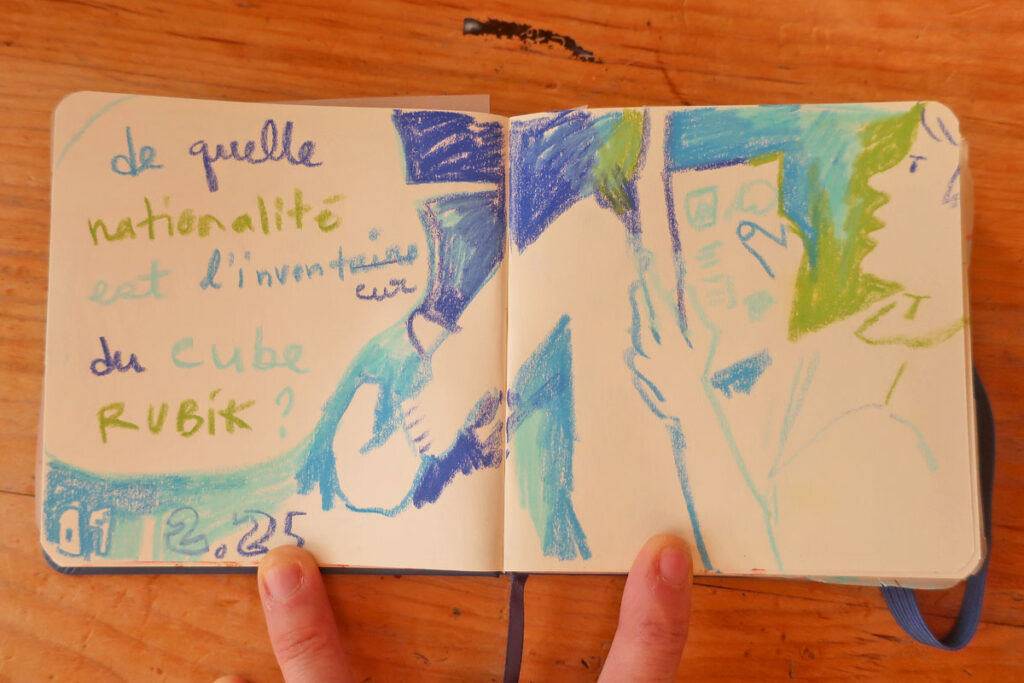 de quelle
nationalité
est l'inventaire
eur
du cube
RUBIK ?
01 2.25